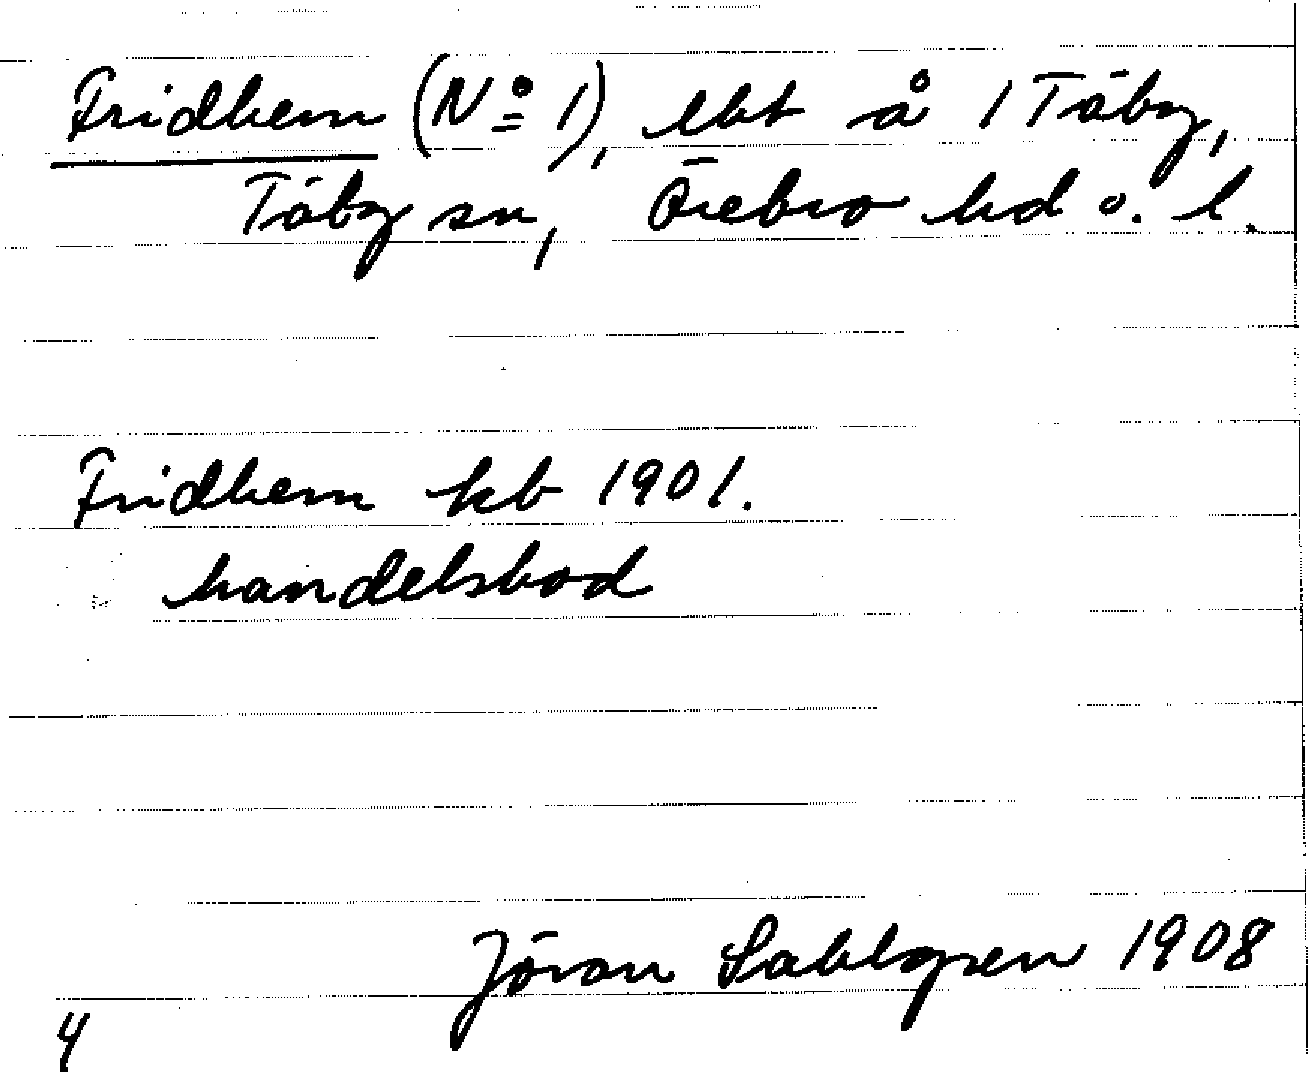 Fridhem (No 1), lht å 1 Täby,
Täby sn, Örebro hd o. l.
Fridhem kb 1901.
handelsbod
Jöran Sahlgren 1908
4